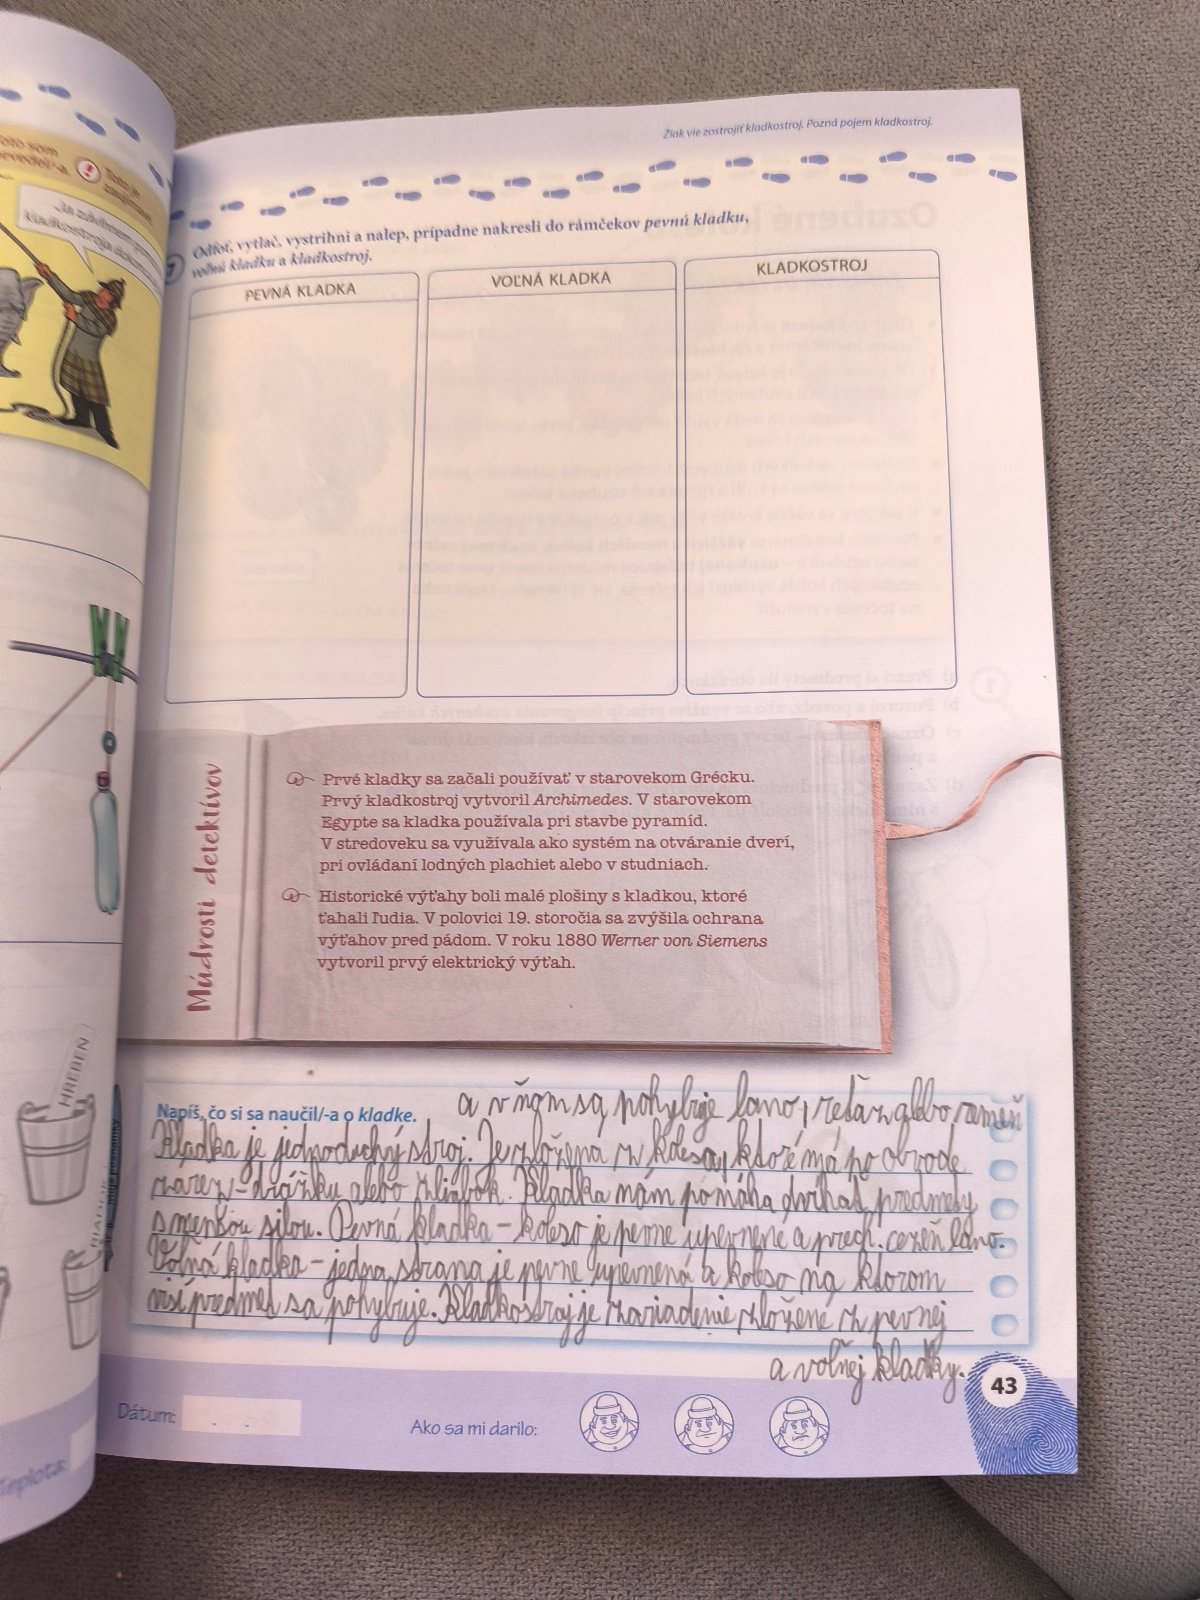 Žiak vie zostrojiť kladkostroj. Pozná pojem kladkostroj.
Odfoť, vytlač, vystrihni a nalep, prípadne nakresli do rámčekov pevnú kladku,
voľnú kladku a kladkostroj.
PEVNÁ KLADKA
VOĽNÁ KLADKA
KLADKOSTROJ
Múdrosti detektívov
Prvé kladky sa začali používať v starovekom Grécku.
Prvý kladkostroj vytvoril Archimedes. V starovekom
Egypte sa kladka používala pri stavbe pyramíd.
V stredoveku sa využívala ako systém na otváranie dverí,
pri ovládaní lodných plachiet alebo v studniach.
Historické výťahy boli malé plošiny s kladkou, ktoré
ťahali ľudia. V polovici 19. storočia sa zvýšila ochrana
výťahov pred pádom. V roku 1880 Werner von Siemens
vytvoril prvý elektrický výťah.
HREBEŇ
Napíš, čo si sa naučil/-a o kladke.
a v ňom sa pohybuje lano, reťaz alebo remeň
Kladka je jednoduchý stroj. Je zložená z kolesa, ktoré má po obvode
zárez - drážku alebo žliabok. Kladka nám pomáha dvíhať predmety
s menšou silou. Pevná kladka - koleso je pevne upevnené a prech. cezeň lano.
Voľná kladka - jedna strana je pevne upevnená a koleso na ktorom
visí predmet sa pohybuje. Kladkostroj je zariadenie zložené z pevnej
a voľnej kladky.
43
Dátum:
Ako sa mi darilo:
Teplota: